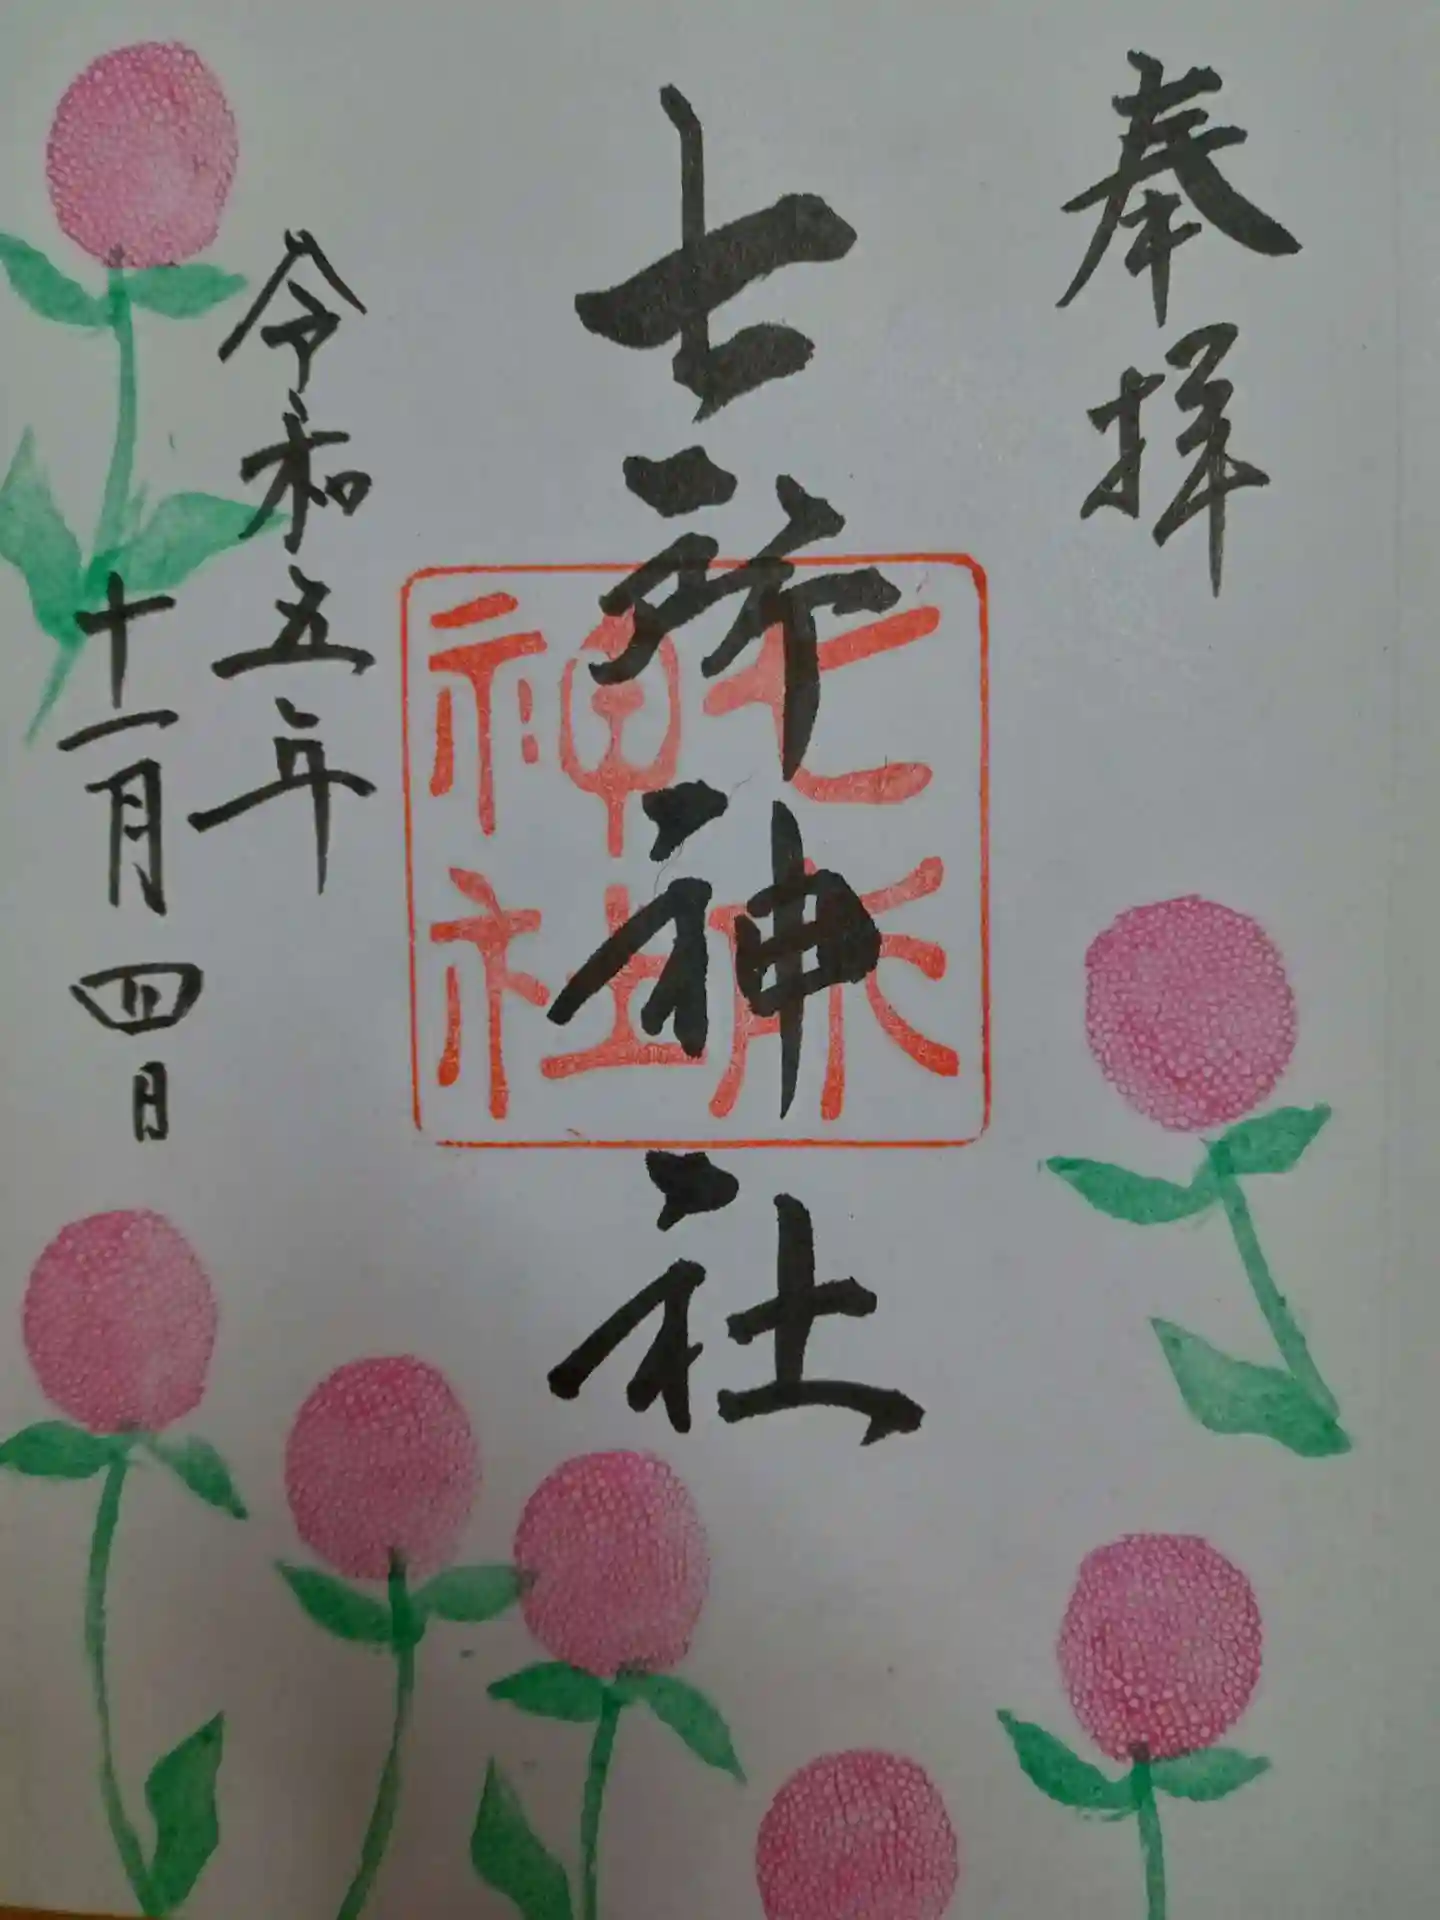 奉拝
七所神社
七所
神社
令和五年
十一月四日